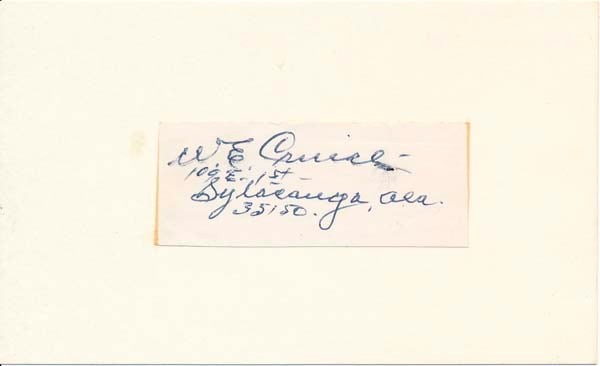 W. E. Crusch
109 E. 1st
Sylacauga, Ala.
35150.